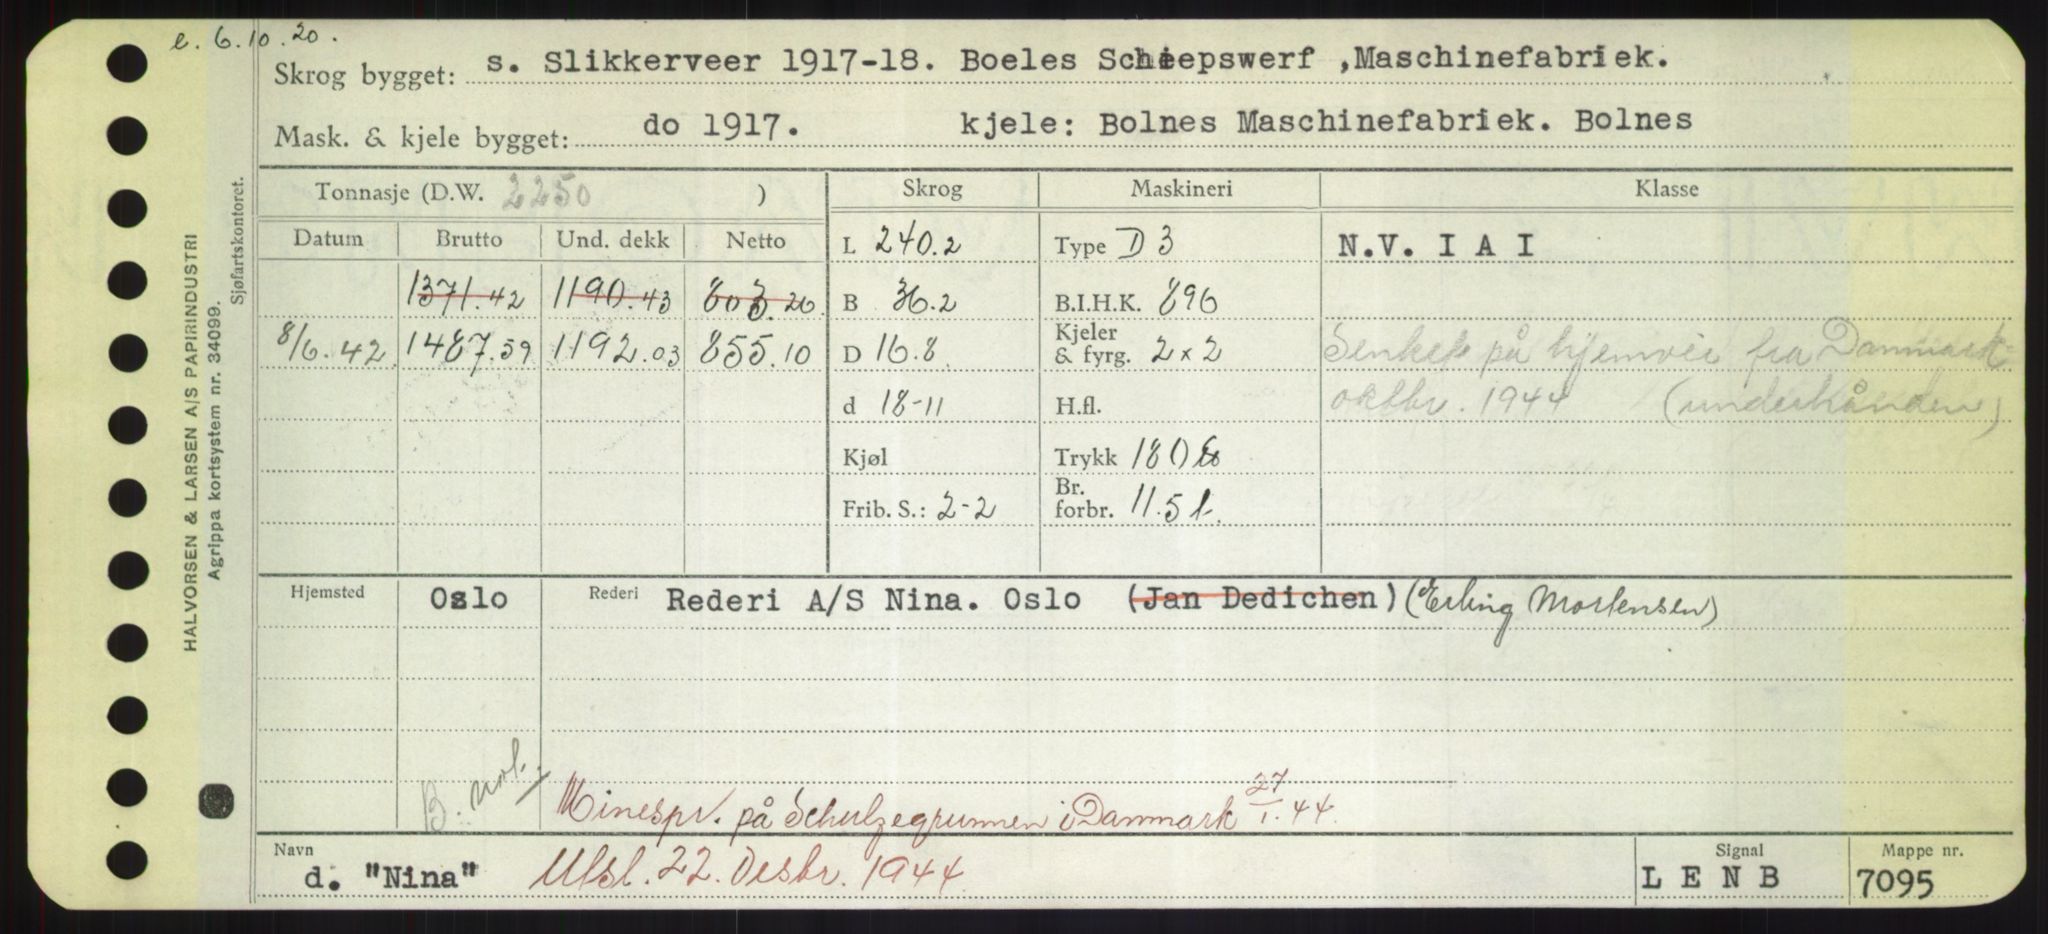 e. 6.10.20.
Skrog bygget: s. Slikkerveer 1917-18. Boeles Scheepswerf ,Maschinefabriek.
Mask. & kjele bygget: do 1917. kjele: Bolnes Maschinefabriek. Bolnes
Tonnasje (D.W. 2250 ) Skrog Maskineri Klasse
Datum Brutto Und. dekk Netto L 240.2 Type D 3 N.V. I A I
1371.42 1190.43 803.20 B 36.2 B.I.H.K. 896
8/6.42 1487.59 1192.03 855.10 D 16.8 Kjeler & fyrg. 2 x 2 Senket på hjemvei fra Danmark
d 18-11 H.fl. oktbr. 1944 (underhånden)
Kjøl Trykk 180
Frib. S.: 2-2 Br. forbr. 11.5 t.
Hjemsted Oslo Rederi Rederi A/S Nina. Oslo (Jan Dedichen) (Erling Mortensen)
B. not.
Minespr. på Schulzegrunnen i Danmark 27/1.44.
Navn d. "Nina" Utsl. 22. Desbr. 1944 Signal L E N B Mappe nr. 7095
HALVORSEN & LARSEN A/S PAPIRINDUSTRI
Agrippa kortsystem nr. 34099.
Sjøfartskontoret.